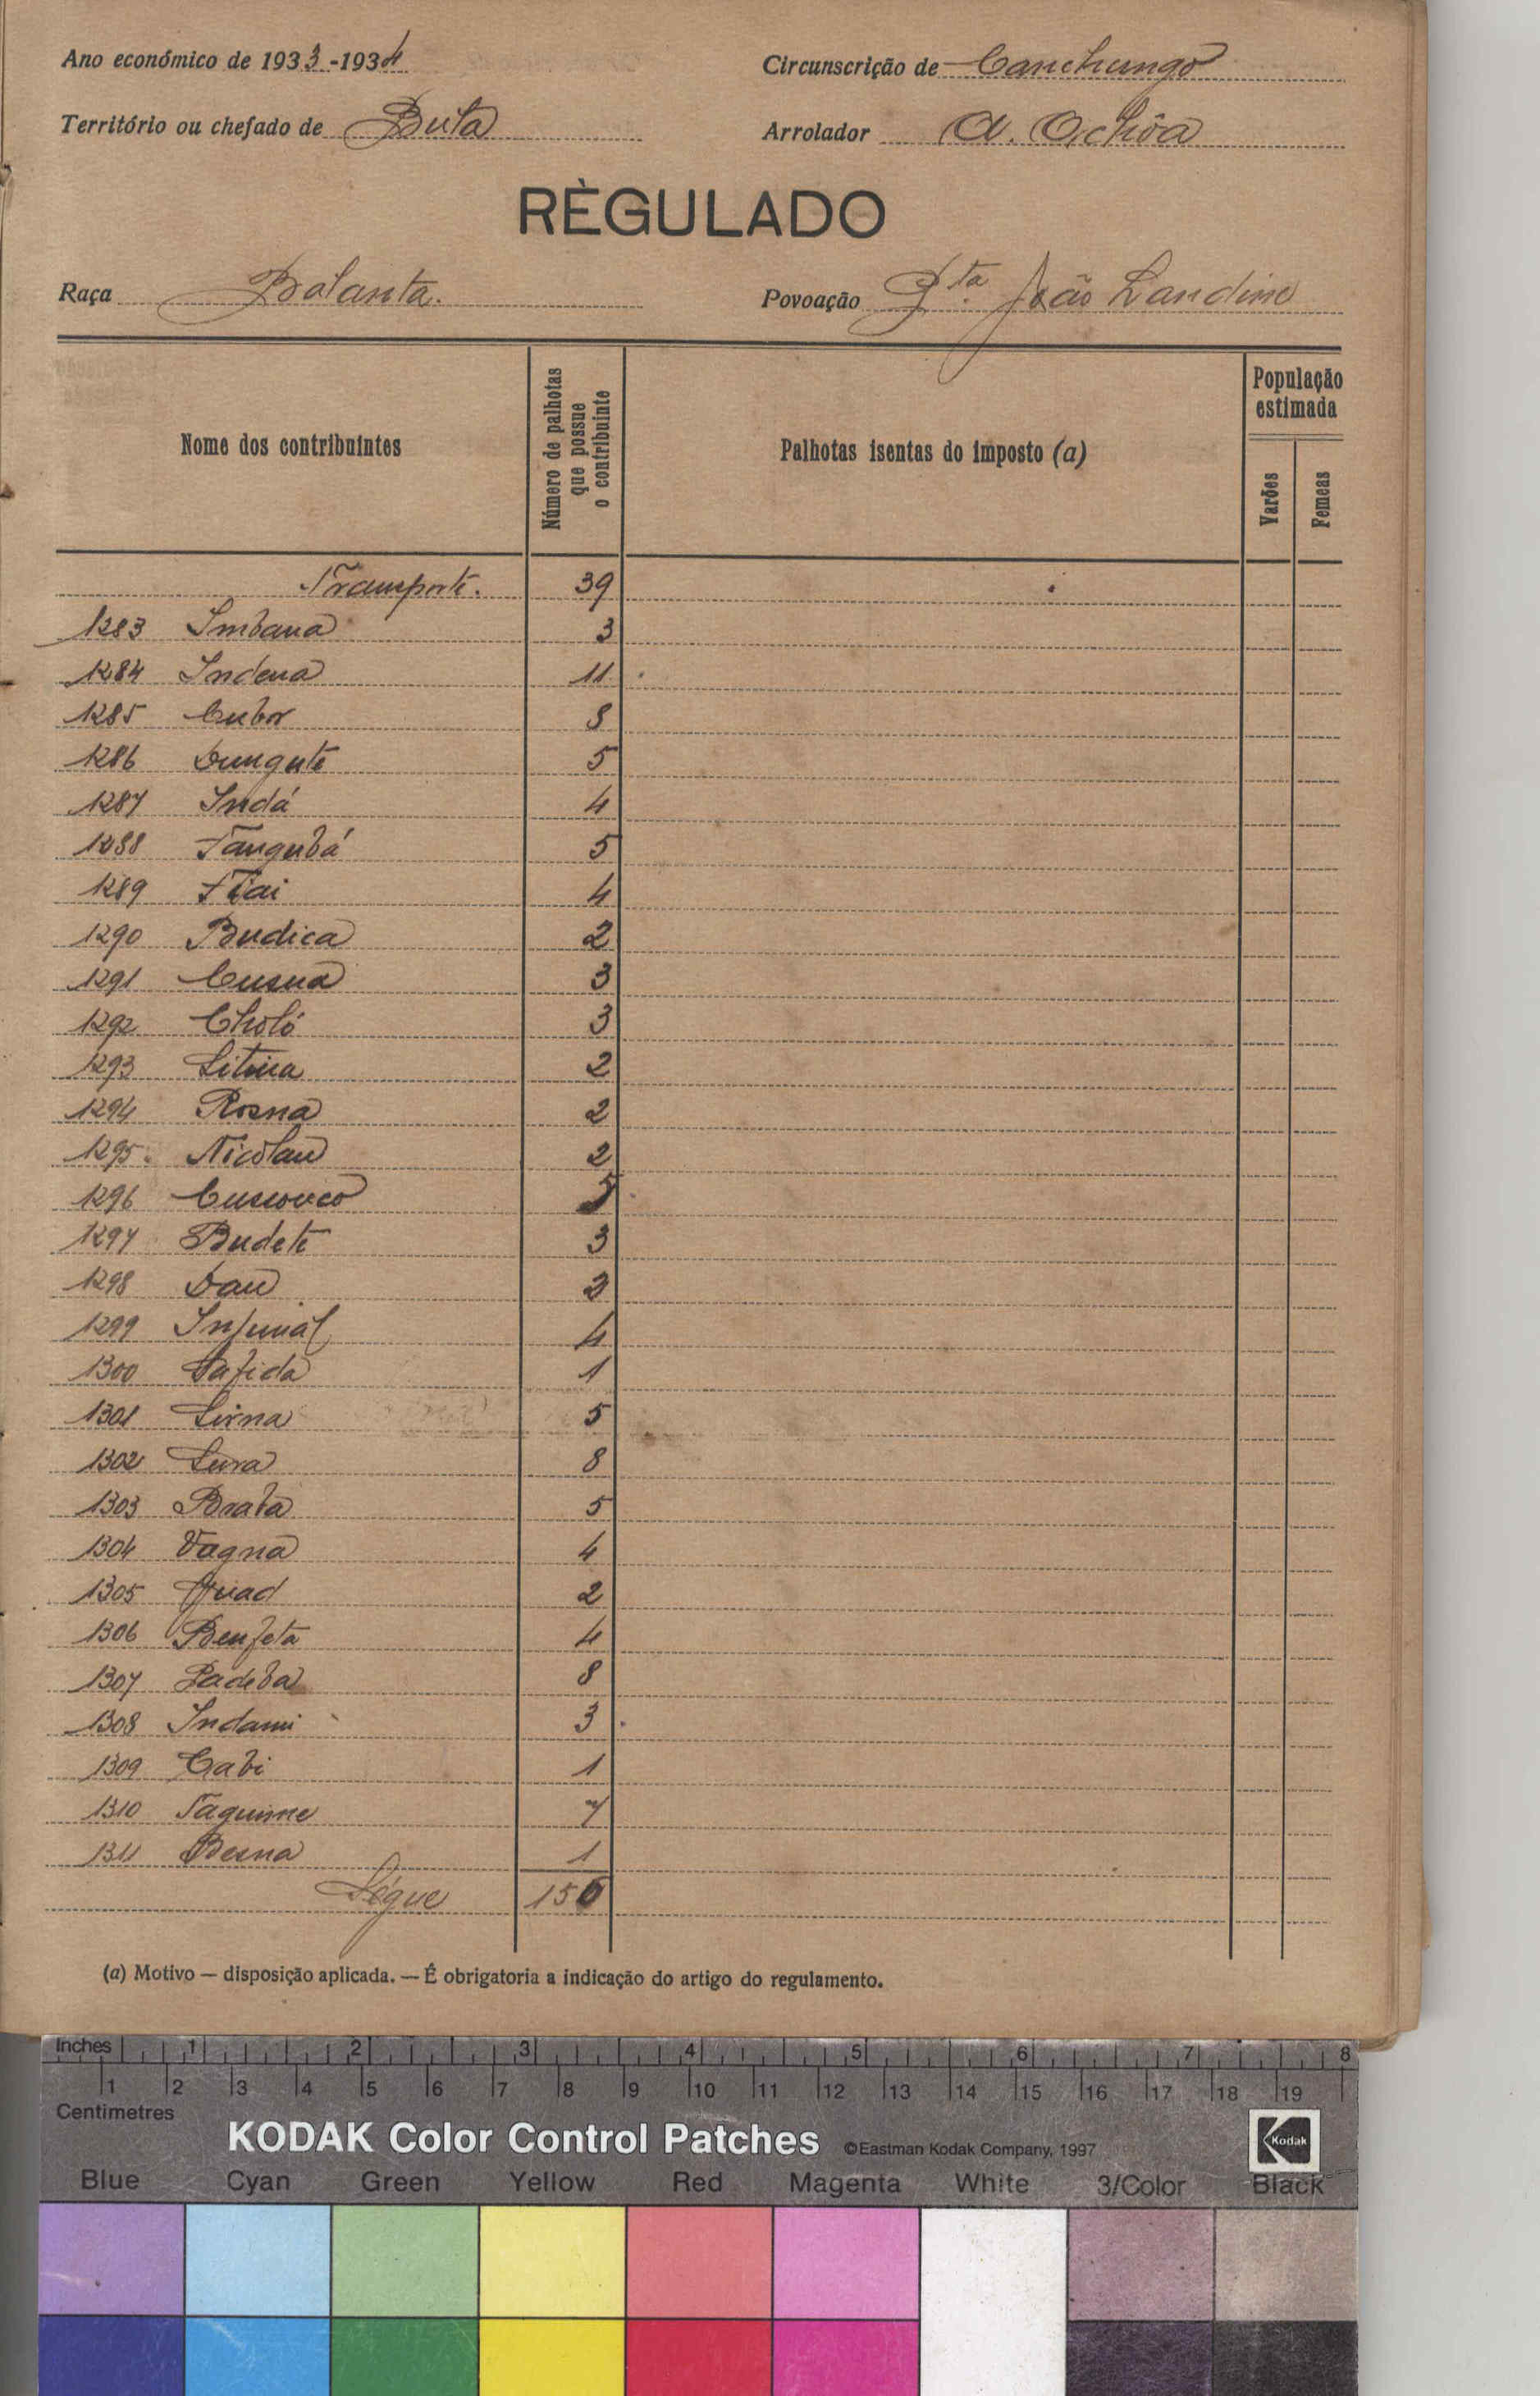 Ano económico de 1933-1934 Circunscrição de Canchungo
Território ou chefado de Buta Arrolador A. Ochôa
RÈGULADO
Raça Balanta. Povoação Pta. João Landine
Nome dos contribuintes
Número de palhotas que possue o contribuinte
Palhotas isentas do imposto (a)
População estimada
Varões
Femeas
Transporte. 39
1283 Imbana 3
1284 Indena 11
1285 Cubor 8
1286 Dungute 5
1287 Indá 4
1288 Tangubá 5
1289 Tiai 4
1290 Budica 2
1291 Cusna 3
1292 Choló 3
1293 2
1294 Rosna 2
1295 Nicolau 2
1296 5
1297 Budete 3
1298 Dau 2
1299 4
1300 Safida 1
1301 Lirna 5
1302 8
1303 Braba 5
1304 Vagna 4
1305 2
1306 Benfeta 4
1307 Padeba 8
1308 Indami 3
1309 Cabi 1
1310 Taguime 7
1311 Besna 1
Ségue 156
(a) Motivo — disposição aplicada. — É obrigatoria a indicação do artigo do regulamento.
Inches 1 2 3 4 5 6 7 8
1 2 3 4 5 6 7 8 9 10 11 12 13 14 15 16 17 18 19
Centimetres
KODAK Color Control Patches ©Eastman Kodak Company, 1997 Kodak
Blue Cyan Green Yellow Red Magenta White 3/Color Black